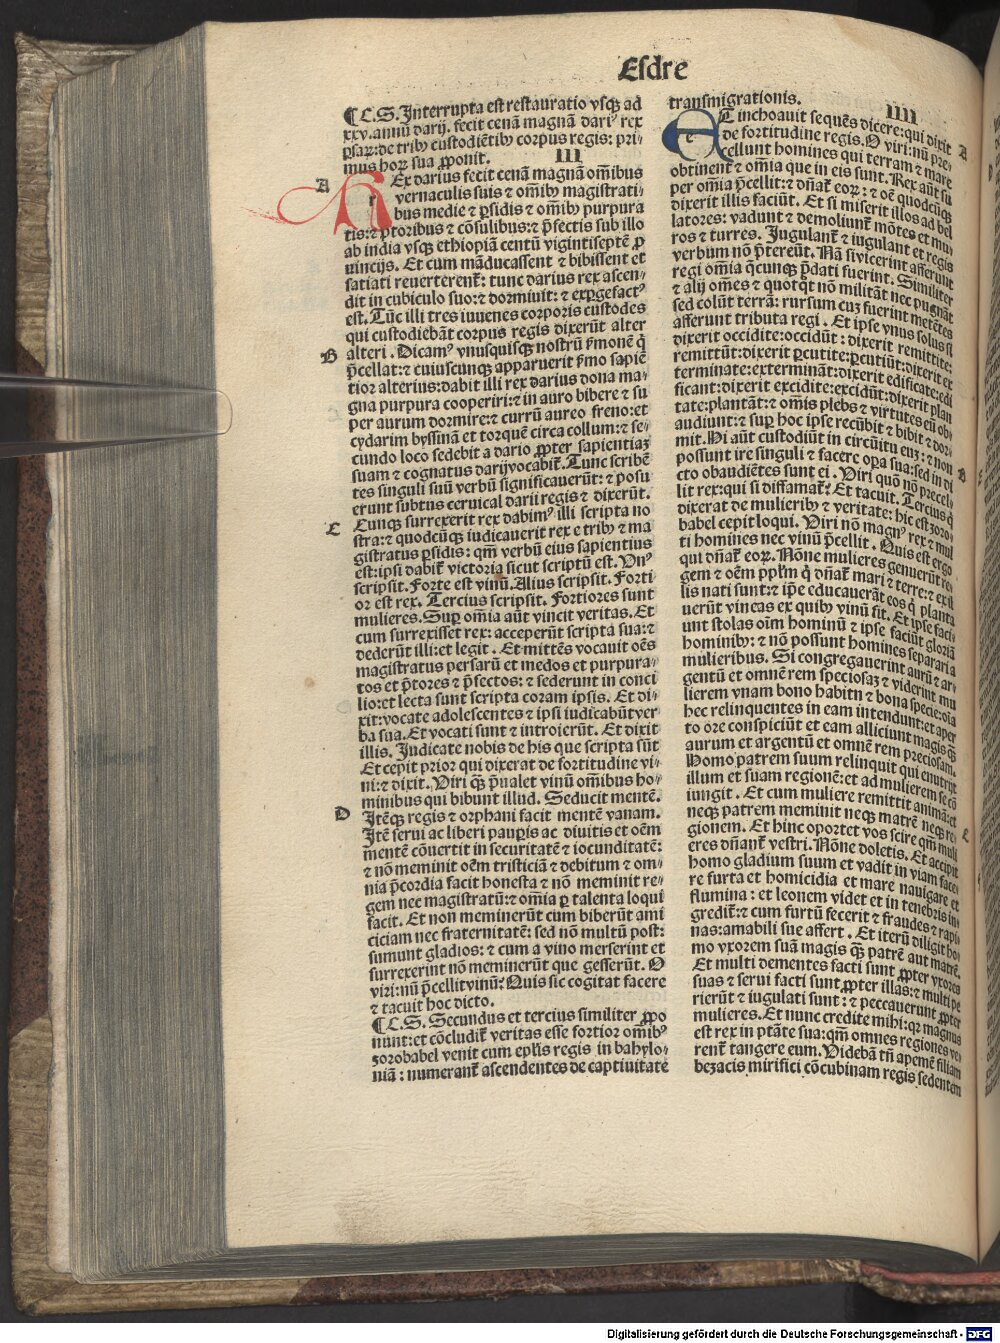 Esdre
¶ C.S. Interrupta est restauratio vsqꝫ ad
xxv. annū darij. fecit cenā magnā dariꝰ rex
ꝑsaꝝ: de tribꝰ custodiētibꝰ corpus regis: pri-
mus hoꝝ sua ꝓponit. III
A
REx darius fecit cenā magnā om̄ibus
vernaculis suis ⁊ om̄ibꝰ magistrati-
bus medie ⁊ ꝑsidis ⁊ om̄ibꝰ purpura
tis: ⁊ p̄toribus ⁊ cōsulibus: ⁊ p̄fectis sub illo
ab india vsqꝫ ethiopiā centū vigintiseptē ꝓ
uincijs. Et cum māducassent ⁊ bibissent et
satiati reuerterent᷑: tunc darius rex ascen-
dit in cubiculo suo: ⁊ dormiuit: ⁊ exꝑgefactꝰ
est. Tūc illi tres iuuenes corporis custodes
qui custodiebāt corpus regis dixerūt alter
B
alteri. Dicamꝰ vnusquisqꝫ nostrū ẜmonē q̇
p̄cellat: ⁊ cuiuscunqꝫ apparuerit ẜmo sapiē
tior alterius: dabit illi rex darius dona ma-
gna purpura cooperiri: ⁊ in auro bibere ⁊ su
per aurum dormire: ⁊ currū aureo freno: et
cydarim byssinā et torquē circa collum: ⁊ se-
cundo loco sedebit a dario ꝓpter sapientiaꝫ
suam ⁊ cognatus darij vocabit᷑. Tunc scribē
tes singuli suū verbū significauerūt: ⁊ posu
erunt subtus ceruical darii regis ⁊ dixerūt.
C
Cunqꝫ surrexerit rex dabimꝰ illi scripta no
stra: ⁊ quodcūqꝫ iudicauerit rex e tribꝰ ⁊ ma
gistratus ꝑsidis: qm̄ verbū eius sapientius
est: ipsi dabit᷑ victoria sicut scriptū est. Vnꝰ
scripsit. Forte est vinū. Alius scripsit. Forti
or est rex. Tercius scripsit. Fortiores sunt
mulieres. Suꝑ omnia aūt vincit veritas. Et
cum surrexisset rex: acceperūt scripta sua: ⁊
dederūt illi: et legit. Et mittēs vocauit oēs
magistratus persarū et medos et purpura-
tos et p̄tores ⁊ p̄fectos: ⁊ sederunt in conci
lio: et lecta sunt scripta coram ipsis. Et di-
xit: vocate adolescentes ⁊ ipsi iudicabūt ver
ba sua. Et vocati sunt ⁊ introierūt. Et dixit
illis. Iudicate nobis de his que scripta sūt
Et cepit prior qui dixerat de fortitudine vi-
ni: ⁊ dixit. Viri qꝫ̄ p̄ualet vinū om̄ibus ho-
minibus qui bibunt illud. Seducit mentē.
D
Itēqꝫ regis ⁊ orphani facit mentē vanam.
Itē serui ac liberi pauꝑis ac diuitis et oēm
mentē cōuertit in securitatē ⁊ iocunditatē:
⁊ nō meminit oēm tristiciā ⁊ debitum ⁊ om-
nia p̄cordia facit honesta ⁊ nō meminit re-
gem nec magistratū: ⁊ om̄ia ꝑ talenta loqui
facit. Et non meminerūt cum biberūt ami
ciciam nec fraternitatē: sed nō multū post:
sumunt gladios: ⁊ cum a vino merserint et
surrexerint nō meminerūt que gesserūt. O
viri: nū p̄cellit vinū? Quis sic cogitat facere
⁊ tacuit hoc dicto.
¶ C.S. Secundus et tercius similiter ꝓpo
nunt: et cōcludit᷑ veritas esse fortior om̄ibꝰ
zorobabel venit cum ep̄lis regis in babylo-
niā: numerant᷑ ascendentes de captiuitate
transmigrationis. IIII
A
ET inchoauit sequēs dicere: qui dixit
de fortitudine regis. O viri: nū pre-
cellunt homines qui terram ⁊ mare
obtinent ⁊ om̄ia que in eis sunt. Rex aūt su
per om̄ia p̄cellit: ⁊ dn̄at᷑ eoꝝ: ⁊ oē quodcūqꝫ
dixerit illis faciūt. Et si miserit illos ad bel
latores: vadunt ⁊ demoliunt᷑ mōtes et mu-
ros ⁊ turres. Iugulant᷑ ⁊ iugulant et regis
verbum nō p̄tereūt. Nā si vicerint afferunt
regi om̄ia q̄cunqꝫ p̄dati fuerint. Similiter
⁊ alij om̄es ⁊ quotqͦt nō militāt nec pugnāt
sed colūt terrā: rursum cuꝫ fuerint metētes
afferunt tributa regi. Et ipse vnus solus si
dixerit occidite: occidūt: dixerit remittite:
remittūt: dixerit ꝑcutite: ꝑcutiūt: dixerit ex
terminate: extermināt: dixerit edificate: edi
ficant: dixerit excidite: excidūt: dixerit plan
tate: plantāt: ⁊ om̄is plebs ⁊ virtutes eū ob-
audiunt: ⁊ suꝑ hoc ipse recūbit ⁊ bibit ⁊ dor-
mit. Hi aūt custodiūt in circūitu euꝫ: ⁊ non
possunt ire singuli ⁊ facere oꝑa sua: sed in di
B
cto obaudiētes sunt ei. Viri quō nō precel-
lit rex: qui si diffamat᷑? Et tacuit. Tercius q̇
dixerat de mulieribꝰ ⁊ veritate: hic est zoro-
babel cepit loqui. Viri nō magnꝰ rex ⁊ mul
ti homines nec vinū p̄cellit. Quis est ergo
qui dn̄at᷑ eoꝝ. Nōne mulieres genuerūt re-
gem ⁊ oēm pplm̄ q̇ dn̄at᷑ mari ⁊ terre: ⁊ ex il
lis nati sunt: ⁊ ip̄e educauerāt eos q̇ planta
uerūt vineas ex quibꝰ vinū fit. Et ipse faci-
unt stolas oīm hominū ⁊ ipse faciūt gloriā
hominibꝰ: ⁊ nō possunt homines separari a
mulieribus. Si congregauerint aurū ⁊ ar-
gentū et omnē rem speciosaꝫ ⁊ viderint mu
lierem vnam bono habitu ⁊ bona specie: oīa
hec relinquentes in eam intendunt: et aper
to ore conspiciūt et eam alliciunt magis qꝫ̄
aurum et argentū et omnē rem preciosam.
Homo patrem suum relinquit qui enutriit
illum et suam regionē: et ad mulierem se cō
iungit. Et cum muliere remittit animā: et
neqꝫ patrem meminit neqꝫ matrē neqꝫ re-
C
gionem. Et hinc oportet vos scire qm̄ muli
eres dn̄ant᷑ vestri. Nōne doletis. Et accipit
homo gladium suum et vadit in viam face-
re furta et homicidia et mare nauigare et
flumina: et leonem videt et in tenebris in-
gredit᷑: ⁊ cum furtū fecerit ⁊ fraudes ⁊ rapi-
nas: amabili sue affert. Et iterū diligit ho-
mo vxorem suā magis qꝫ̄ patrē aut matrē.
Et multi dementes facti sunt ꝓpter vxores
suas ⁊ serui facti sunt ꝓpter illas: ⁊ multi pe
rierūt ⁊ iugulati sunt: ⁊ peccauerunt ꝓpter
mulieres. Et nunc credite mihi: qꝛ magnus
est rex in ptāte sua: qm̄ omnes regiones ve-
rent᷑ tangere eum. Videbā tn̄ apemē filiam
bezacis mirifici cōcubinam regis sedentem
Digitalisierung gefördert durch die Deutsche Forschungsgemeinschaft - DFG